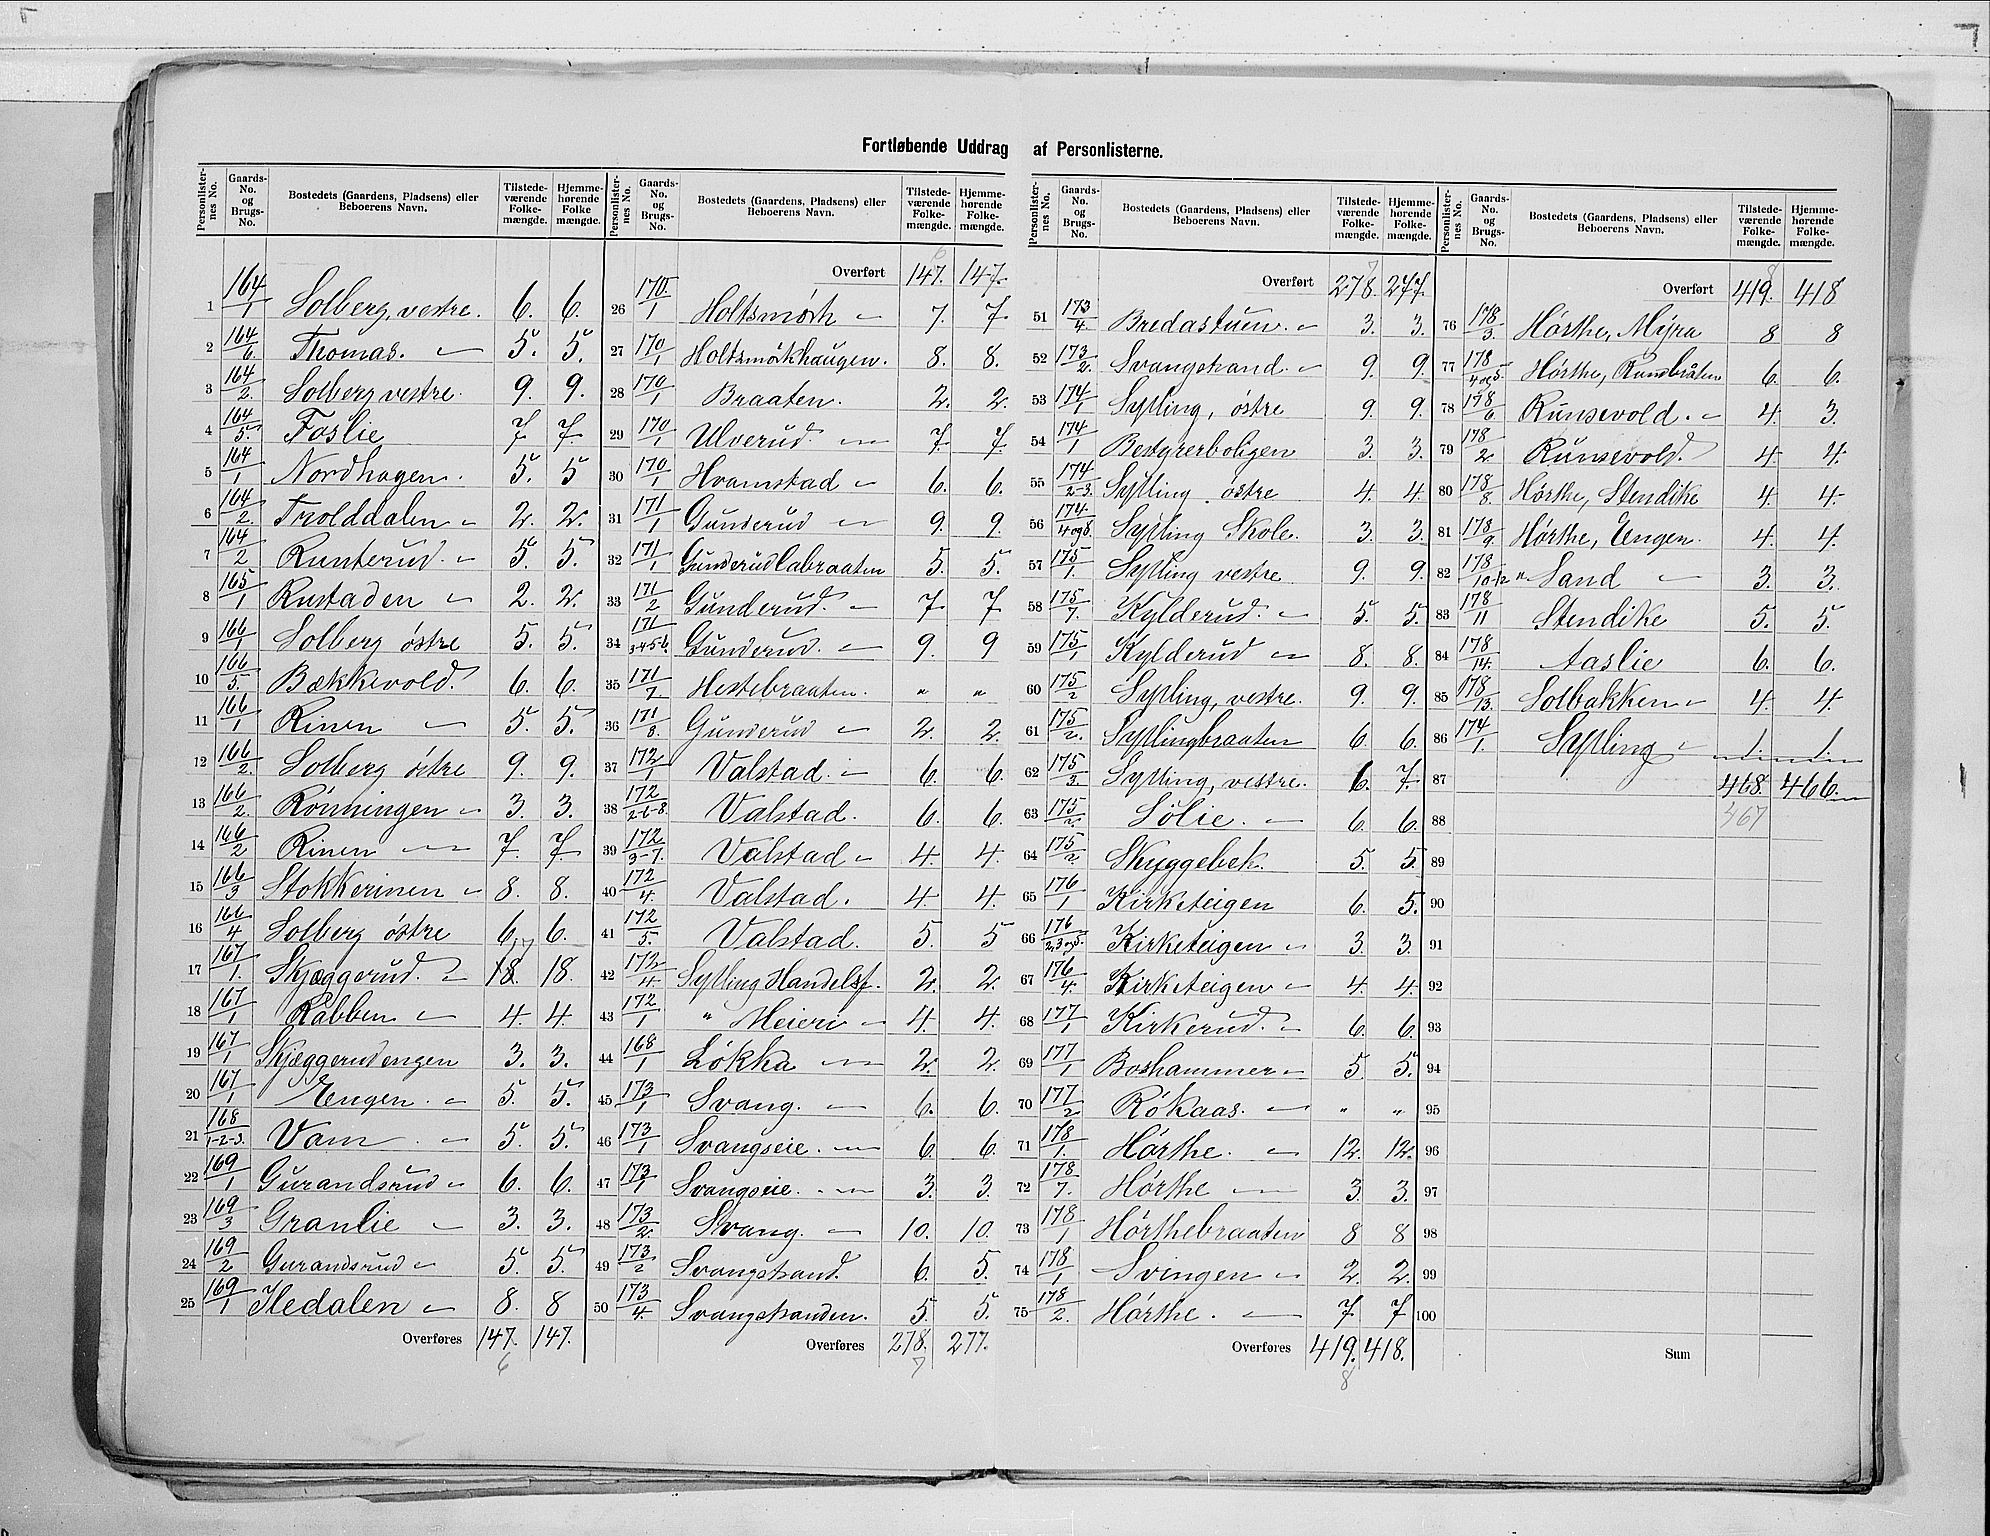 Fortløbende Uddrag af Personlisterne.
Personlister-nes No. | Gaards-No. og Brugs-No. | Bostedets (Gaardens, Pladsens) eller Beboerens Navn. | Tilstede-værende Folke-mængde. | Hjemme-hørende Folke mængde.
1 164/1 Solberg, vestre. 6. 6.
2 164/6. Thomas. 5. 5.
3 164/2. Solberg vestre. 9. 9.
4 164/5. Foslie 7. 7.
5 164/1 Nordhagen. 5. 5
6 164/2. Trolddalen 2. 2.
7 164/2 Runterud. 5. 5.
8 165/1 Rustaden 2. 2.
9 166/1 Solberg östre 5. 5.
10 166/5. Bækkevold. 6. 6.
11 166/1 Rinen 5. 5.
12 166/2. Solberg östre 9. 9.
13 166/2 Rönningen 3. 3.
14 166/2 Rinen 7. 7.
15 166/3 Stokkerinen 8. 8.
16 166/4 Solberg östre 6. 6.
17 167/1. Skjæggerud. 18. 7 18.
18 167/1 Rabben 4. 4.
19 167/1 Skjæggerudengen 3. 3.
20 167/1 Engen. 5. 5.
21 168/1-2-3. Vam 5. 5.
22 169/1 Gurandsrud 6. 6.
23 169/3 Granlie 3. 3.
24 169/2 Gurandsrud 5. 5.
25 169/1 Iledalen 8. 8
Overføres 147. 147.
6
Personlister-nes No. | Gaards-No. og Brugs-No. | Bostedets (Gaardens, Pladsens) eller Beboerens Navn. | Tilstede-værende Folke-mængde. | Hjemme-hørende Folke-mængde.
6
Overført 147. 147.
26 170/1 Holtsmørk 7. 7
27 170/1 Holtsmøkhaugen. 8. 8.
28 170/1 Braaten. 2. 2.
29 170/1 Ulverud. 7. 7.
30 170/1 Hvamstad 6. 6.
31 171/1 Gunderud 9. 9.
32 171/1 Gunderud Labraaten 5. 5.
33 171/2 Gunderud. 7. 7.
34 171/3-4-5-6. Gunderud. 9. 9
35 171/7. Hestebraaten. " "
36 171/8. Gunderud 2. 2.
37 172/1 Valstad. 6. 6.
38 172/2-6-8 Valstad. 6. 6.
39 172/3-7. Valstad 4. 4.
40 172/4. Valstad. 4. 4.
41 172/5. Valstad. 5. 5
42 172/4. Sylling Handelsf. 2. 2.
43 172/1 " Meieri 4. 4.
44 168/1 Lökka 2. 2.
45 173/1 Svang. 6. 6.
46 173/1 Svangseie. 6. 6.
47 173/1 Svangseie. 3. 3.
48 173/2. Svang. 10. 10.
49 173/2 Svangstrand. 6. 5.
50 173/4. Svangstranden. 5. 5.
Overføres 278. 277.
7
Personlister-nes No. | Gaards-No. og Brugs-No. | Bostedets (Gaardens, Pladsens) eller Beboerens Navn. | Tilstede-værende Folke-mængde. | Hjemme-hørende Folke-mængde.
7
Overført 278. 277.
51 173/4. Bredastuen. 3. 3.
52 173/2. Svangstrand. 9. 9.
53 174/1 Sylling, østre 9. 9.
54 174/1 Bestyrerboligen 3. 3.
55 174/2-3. Sylling østre 4. 4.
56 174./4og8. Sylling Skole. 3. 3.
57 175/1. Sylling vestre 9. 9.
58 175/7. Kylderud. 5. 5.
59 175/1 Kylderud 8. 8.
60 175/2 Sylling, vestre. 9. 9.
61 175/2. Syllingbraaten 6. 6.
62 175/3 Sylling, vestre. 6. 7.
63 175/2. Sölie. 6. 6.
64 175/2 Skyggebek. 5. 5.
65 176/1 Kirketeigen 6. 5.
66 176/2,3og5. Kirketeigen 3. 3.
67 176/4. Kirketeigen 4. 4.
68 177/1 Kirkerud. 6. 6.
69 177/1 Boshammer 5. 5.
70 177/2 Rökaas. " "
71 178/1. Hörthe. 12. 12.
72 178/7. Hörthe 3. 3.
73 178/1 Hörthebraaten 8 8
74 178/1 Svingen 2. 2.
75 178/2. Hörthe. 7. 7
Overføres 419. 418.
8
Personlister-nes No. | Gaards-No. og Brugs-No. | Bostedets (Gaardens, Pladsens) eller Beboerens Navn. | Tilstede-værende Folke-mængde. | Hjemme-hørende Folke-mængde.
8
Overført 419. 418
76 178/3. Hörthe, Myra 8 8
77 178/4og5. Hörthe, Runsbråten 6. 6.
78 178/6 Runsevold. 4. 3.
79 178/2 Runsevold. 4. 4.
80 178/8 Hörthe, Stendike 4. 4.
81 178/9. Hörthe, Engen. 4. 4.
82 178/10-12 " Sand 3. 3.
83 178/11 Stendike 5. 5.
84 178/14. Aaslie 6. 6.
85 178/13. Solbakken 4. 4.
86 174/1. Sylling 1. 1.
87 468. 466.
88 467
89
90
91
92
93
94
95
96
97
98
99
100
Sum